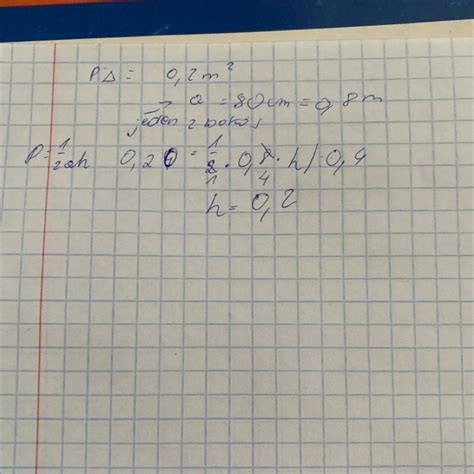 PΔ = 0,2 m²
a = 80 cm = 0,8 m
jeden z boków
P = 1/2 ah 0,2 = 1/2 · 0,8 · h /: 0,4
1 4
h = 0,2